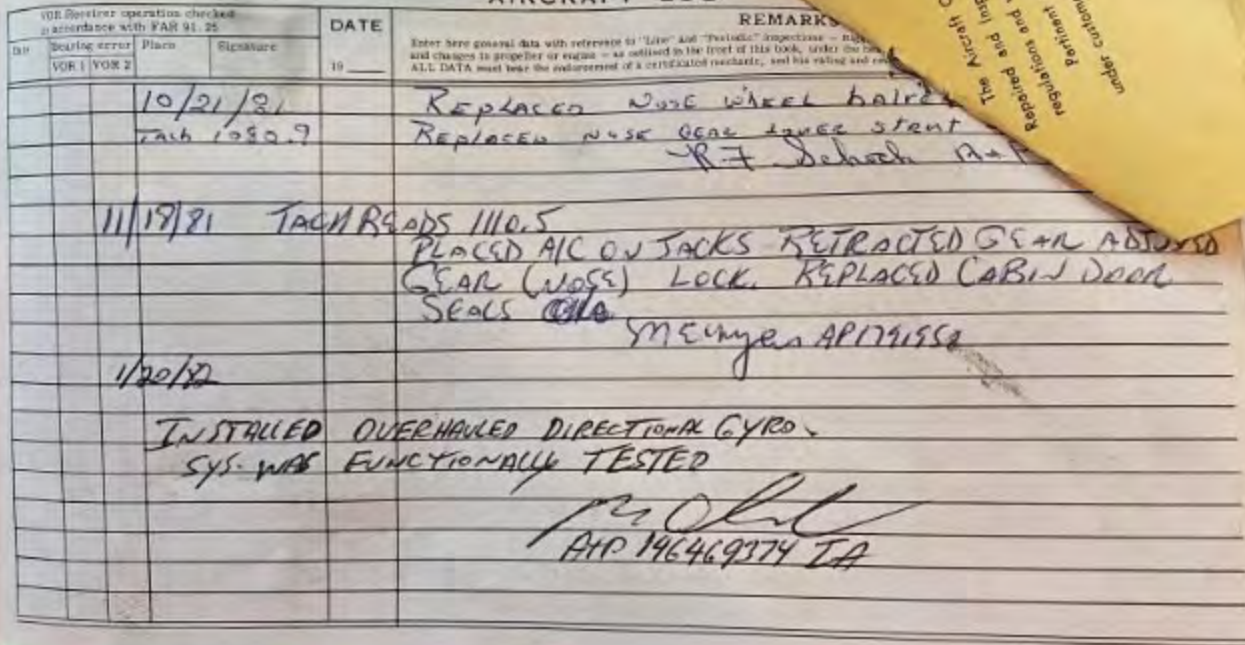 AIRCRAFT
VOR Receiver operation checked
in accordance with FAR 91.25
DATE
REMARKS
Bearing error Place Signature
VOR 1 VOR 2
19
Enter here general data with reference to "Line" and "Periodic" inspections
and changes in propeller or engine - as outlined in the front of this book, under the
ALL DATA must bear the endorsement of a certificated mechanic, and his rating and
The Aircraft
Repaired and
regulations and
Pertinent
under
10/21/81 REPLACED NOSE WHEEL
Tach 1080.9 REPLACED NOSE GEAR LOWER STRUT
R F Schoch A+P
11/18/81 TACH READS 1110.5
PLACED A/C ON JACKS RETRACTED GEAR ADJUSTED
GEAR (NOSE) LOCK. REPLACED CABIN DOOR
SEALS
AP1791958
1/20/82
INSTALLED OVERHAULED DIRECTIONAL GYRO.
SYS. WAS FUNCTIONALLY TESTED
A+P 146469374 IA